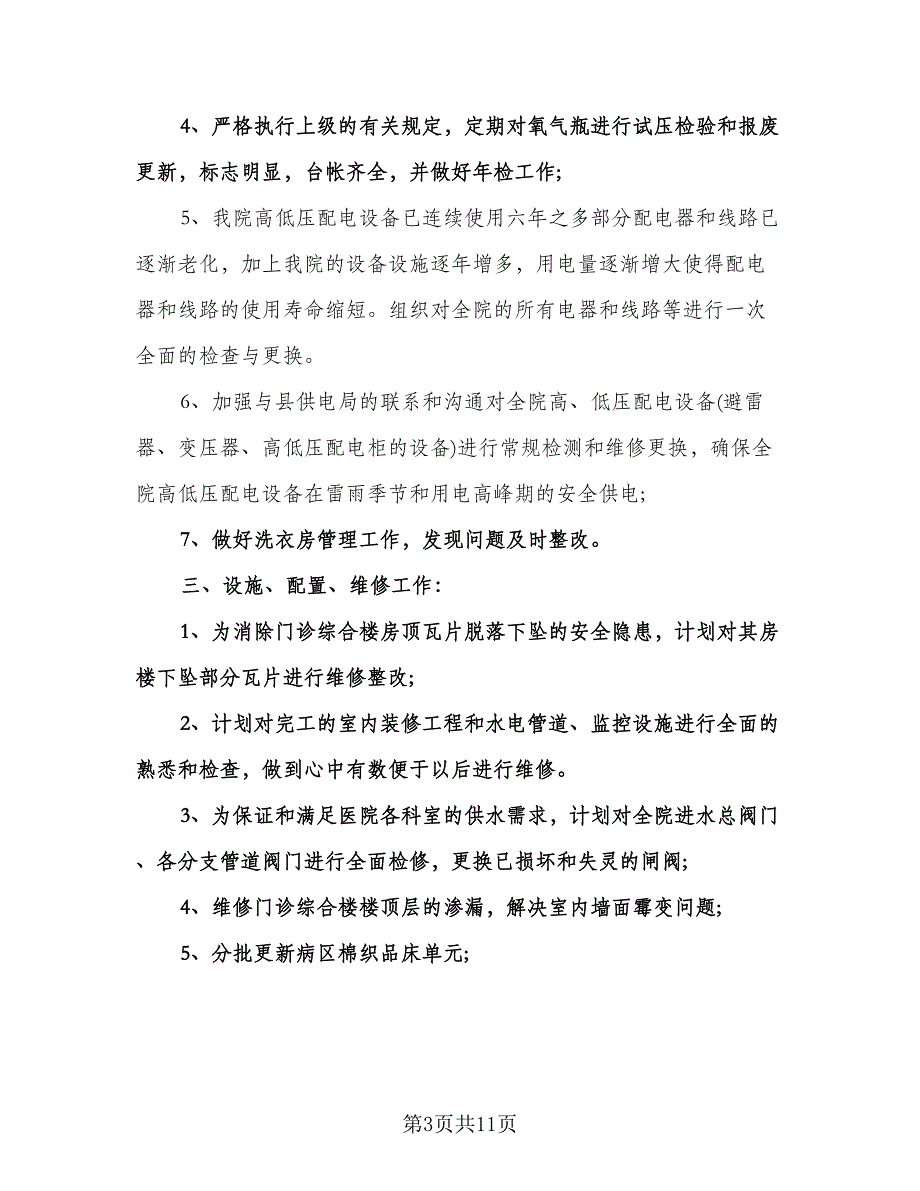 4、严格执行上级的有关规定，定期对氧气瓶进行试压检验和报废
更新，标志明显，台帐齐全，并做好年检工作;
5、我院高低压配电设备已连续使用六年之多部分配电器和线路已
逐渐老化，加上我院的设备设施逐年增多，用电量逐渐增大使得配电
器和线路的使用寿命缩短。组织对全院的所有电器和线路等进行一次
全面的检查与更换。
6、加强与县供电局的联系和沟通对全院高、低压配电设备(避雷
器、变压器、高低压配电柜的设备)进行常规检测和维修更换，确保全
院高低压配电设备在雷雨季节和用电高峰期的安全供电;
7、做好洗衣房管理工作，发现问题及时整改。
三、设施、配置、维修工作：
1、为消除门诊综合楼房顶瓦片脱落下坠的安全隐患，计划对其房
楼下坠部分瓦片进行维修整改;
2、计划对完工的室内装修工程和水电管道、监控设施进行全面的
熟悉和检查，做到心中有数便于以后进行维修。
3、为保证和满足医院各科室的供水需求，计划对全院进水总阀门
、各分支管道阀门进行全面检修，更换已损坏和失灵的闸阀;
4、维修门诊综合楼楼顶层的渗漏，解决室内墙面霉变问题;
5、分批更新病区棉织品床单元;
第3页共11页